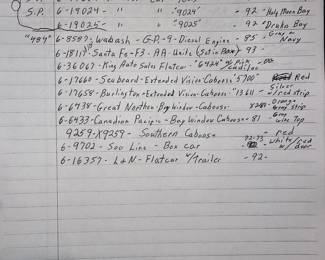 S.P. 6-19024 - " " "9024" - 92 - Half Moon Bay
6-19025 - " " "9025" - 92 - Drake Bay
"484" 6-8587 - Wabash - G-P-9 - Diesel Engine - 85 - Gray + Navy
6-18117 Santa Fe - F-3 AA-Units (Set in Box) 93 -
6-36067 - King Auto Sales Flatcar - "6424" w/ Pink Cadillac
6-17660 - Seaboard - Extended Vision Caboose "5700" Red
6-17658 - Burlington - Extended Vision Caboose - "13611 - Silver w/red strip
6-6438 - Great Northern - Bay Window - Caboose - Orange Gray strip
6-6433 - Canadian Pacific - Bay Window Caboose - 81 Gray Top
9259-X9259 - Southern Caboose - red
6-9702 - Soo Line - Box car - 72-73 - white w/ red door
6-16357 - L+N - Flatcar w/Trailer - 92 -